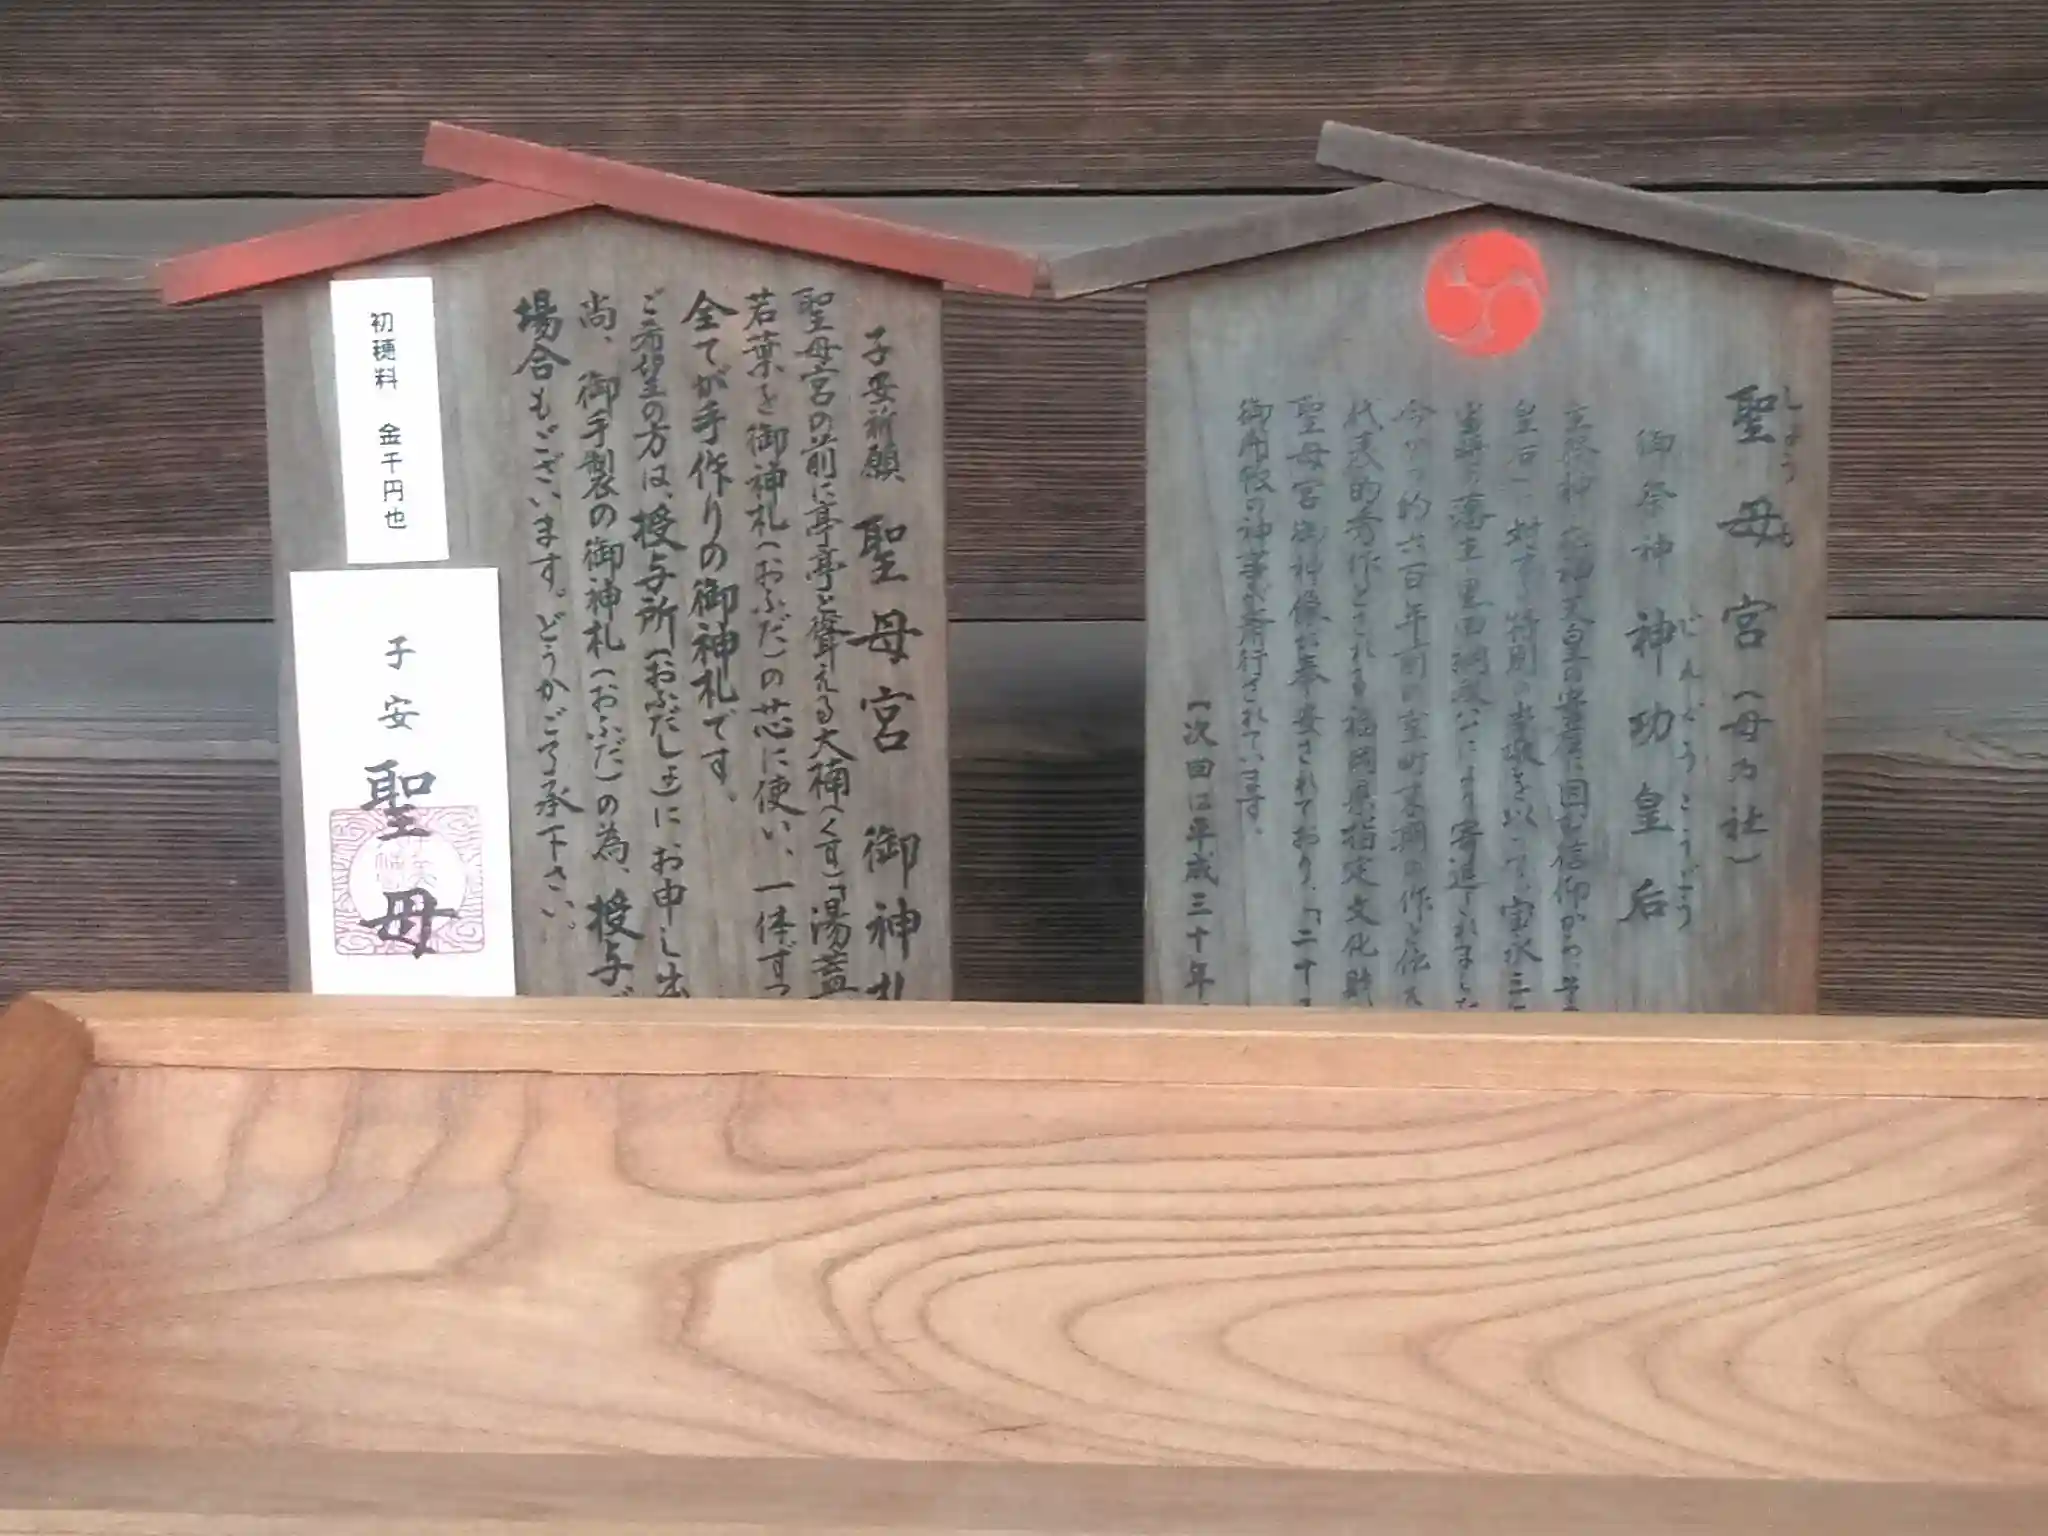 聖母宮(母の社)
しょうも
御祭神 神功皇后
じんぐうこうごう
主祭神 応神天皇の
皇后に対する特別の
藩主黒田綱政公により寄進されました
今から約六百年前の室町末期の作と伝え
代表的秀作とされる福岡県指定文化財
聖母宮御神像が奉安されており、「二十
御開帳の神事が斎行されています。
(次回は平成三十年
子安祈願 聖母宮 御神札
聖母宮の前に亭亭と聳える大楠(くす)「湯蓋
若葉を御神札(おふだ)の芯に使い、一体ずつ
全てが手作りの御神札です。
ご希望の方は、授与所(おふだしょ)にお申し出
尚、御手製の御神札(おふだ)の為、授与
場合もございます。どうかご了承下さい。
初穂料 金千円也
子安 聖母